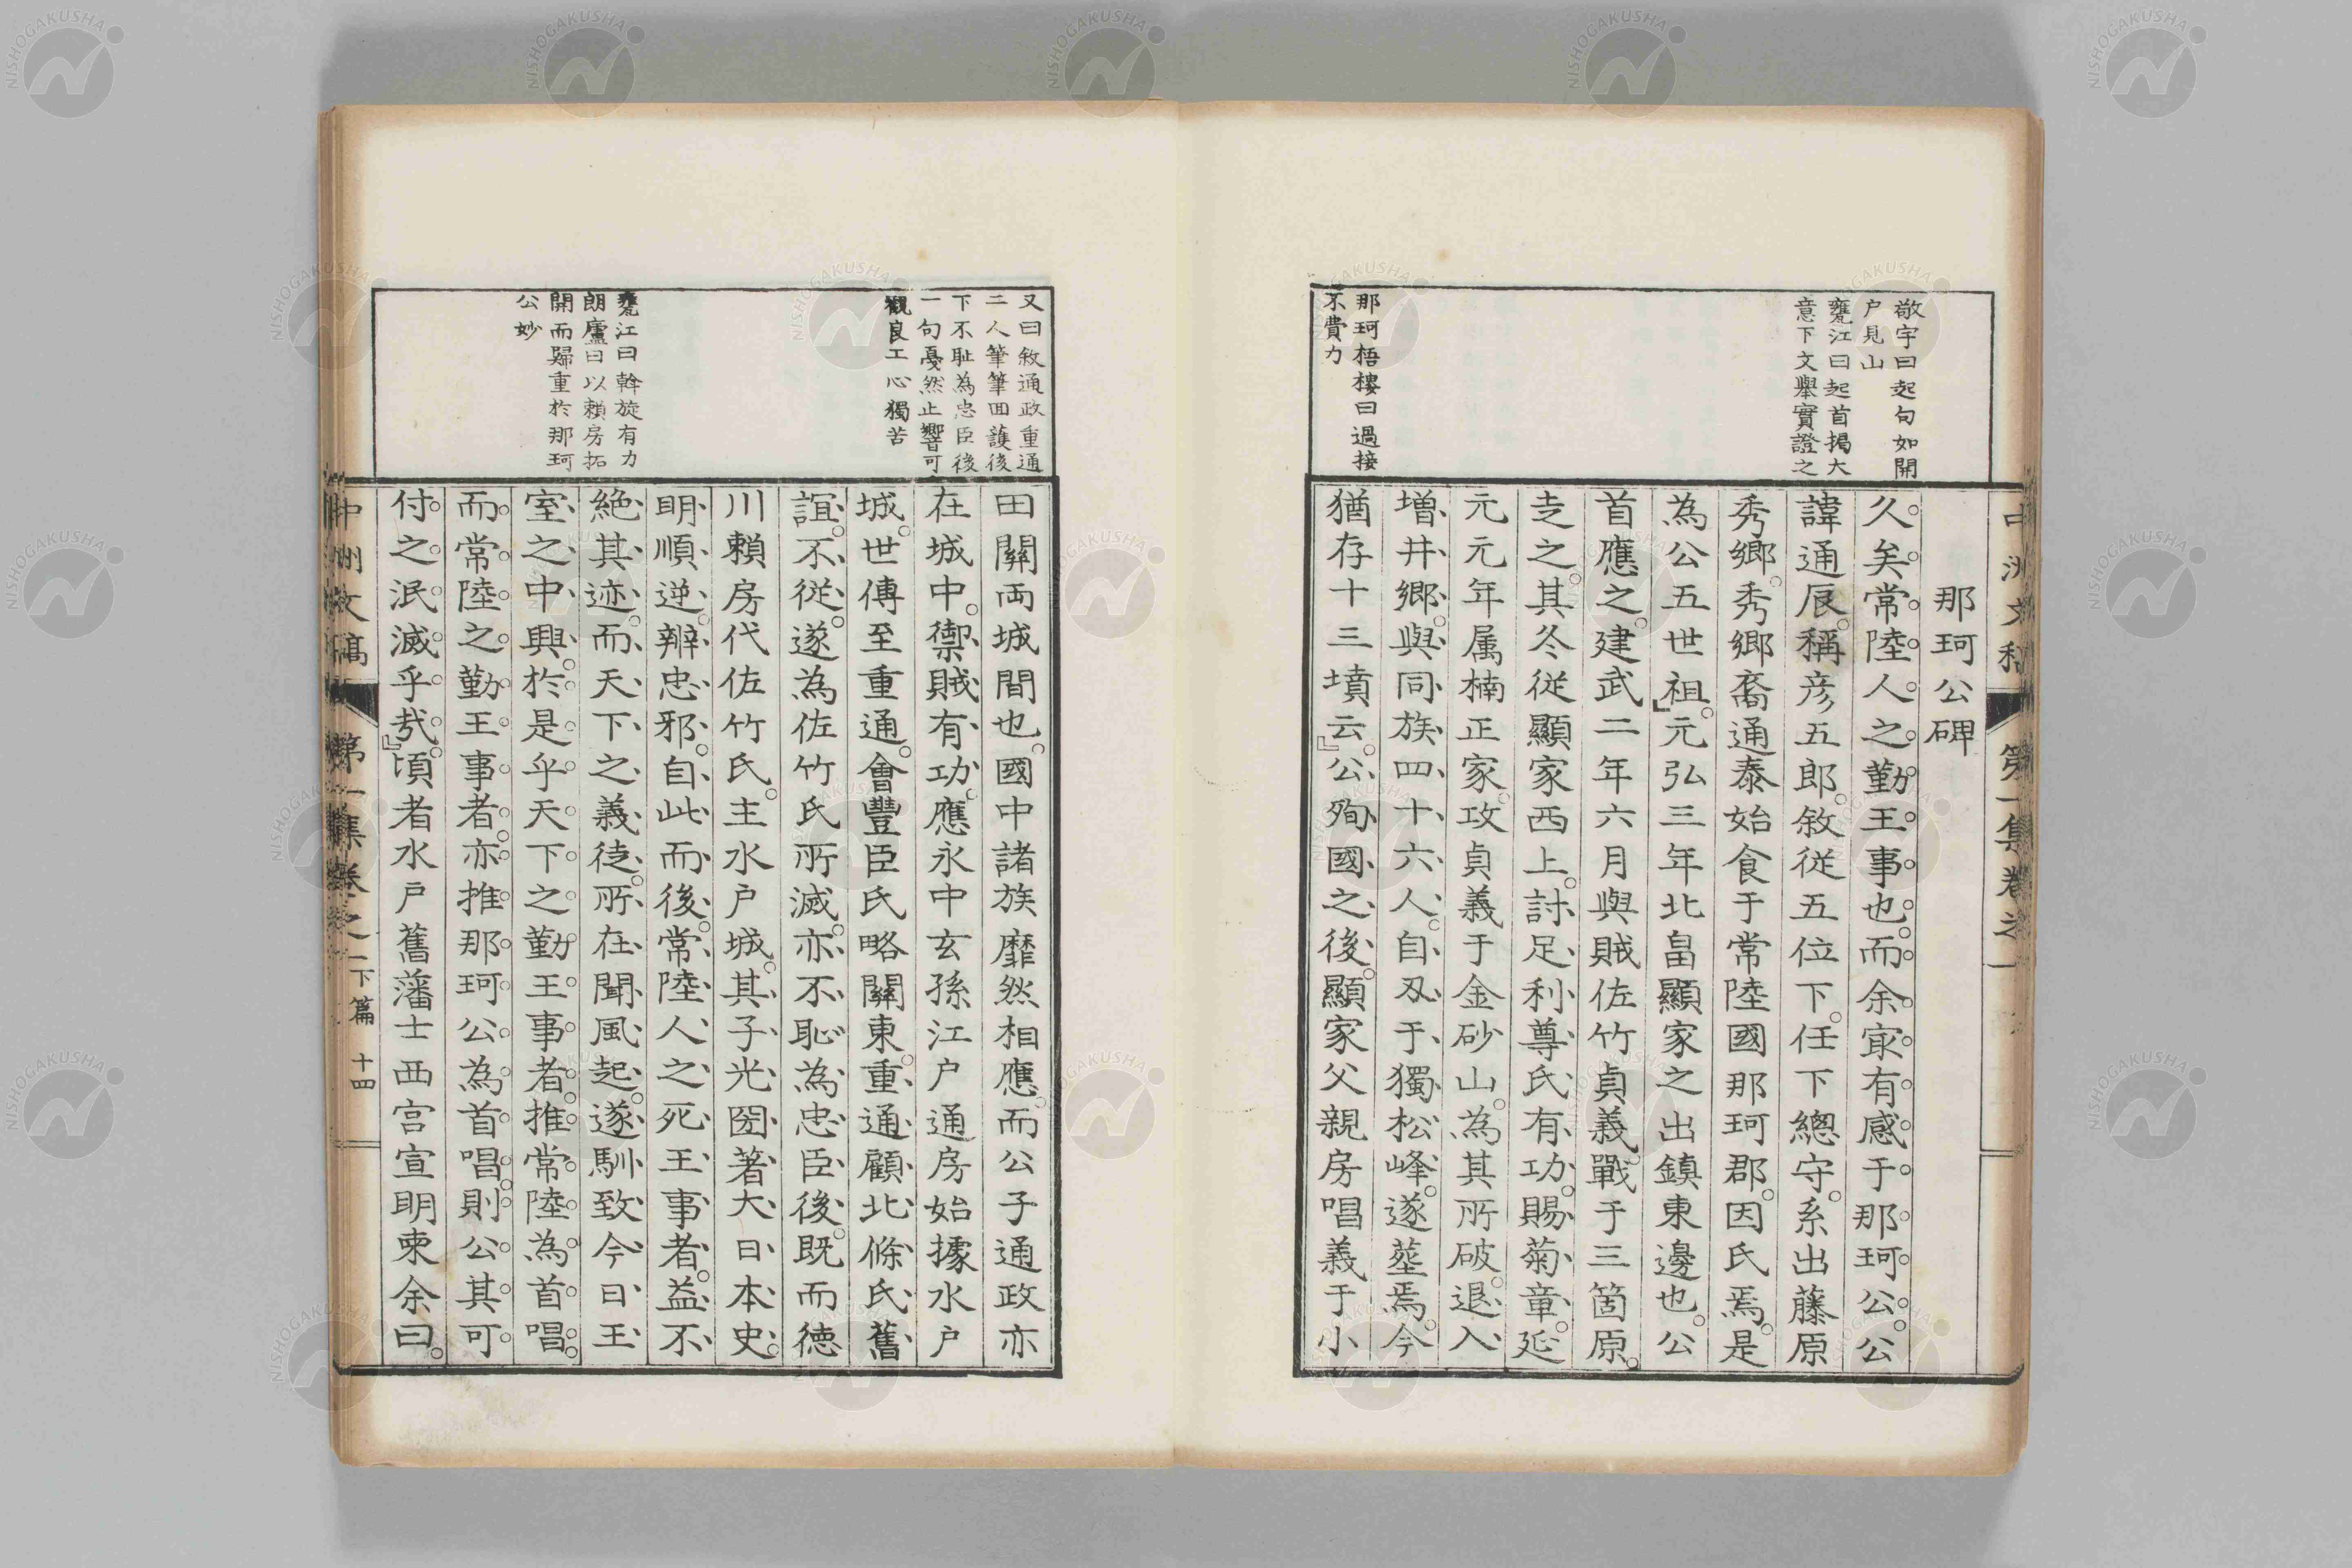 敬宇曰起句如開
户見山
甕江曰起首揭大
意下文舉實證之
那珂梧樓曰過接
不費力
那珂公碑
久矣常陸人之勤王事也而余㝡有感于那珂公公
諱通辰稱彦五郎敘従五位下任下總守系出藤原
秀鄉秀鄉裔通泰始食于常陸國那珂郡因氏焉是
為公五世祖元弘三年北畠顯家之出鎮東邊也公
首應之建武二年六月與賊佐竹貞義戰于三箇原
走之其冬従顯家西上討足利尊氏有功賜菊章延
元元年属楠正家攻貞義于金砂山為其所破退入
増井鄉與同族四十六人自刄于獨松峰遂葬焉今
猶存十三墳云公殉國之後顯家父親房唱義于小
又曰敘通政重通
二人筆筆回護後
下不耻為忠臣後
一句戞然止響可
觀良工心獨苦
甕江曰斡旋有力
朗廬曰以頼房拓
開而歸重於那珂
公妙
田關両城間也國中諸族靡然相應而公子通政亦
在城中禦賊有功應永中玄孫江户通房始據水户
城世傳至重通會豐臣氏略關東重通顧北條氏舊
誼不從遂為佐竹氏所滅亦不恥為忠臣後既而徳
川頼房代佐竹氏主水户城其子光圀著大日本史
明順逆辨忠邪自此而後常陸人之死王事者益不
絶其迹而天下之義徒所在聞風起遂馴致今日王
室之中興於是乎天下之勤王事者推常陸為首唱
而常陸之勤王事者亦推那珂公為首唱則公其可
付之泯滅乎哉頃者水户舊藩士西宮宣明柬余曰
中洲文稿 第一集卷之一下篇 十四
NISHOGAKUSHA